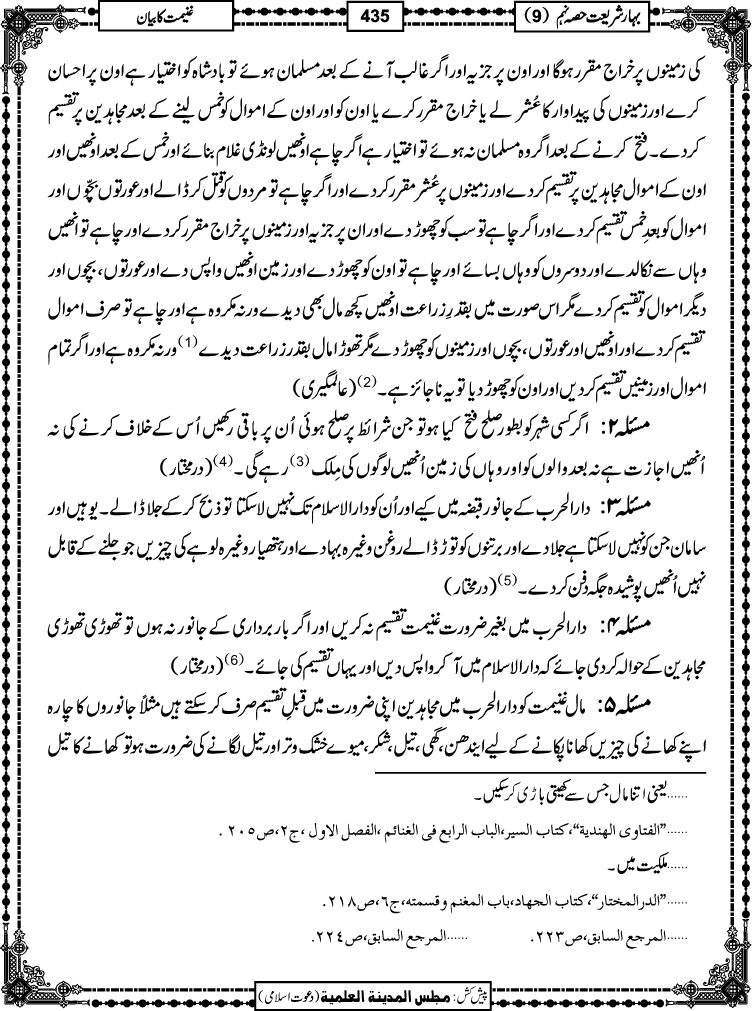 بہارِ شریعت حصہ نہم (9)
435
غنیمت کا بیان
کی زمینوں پر خراج مقرر ہوگا اور اون پر جزیہ اور اگر غالب آنے کے بعد مسلمان ہوئے تو بادشاہ کو اختیار ہے اون پر احسان
کرے اور زمینوں کی پیداوار کا عُشر لے یا خراج مقرر کرے یا اون کو اور اون کے اموال کو خمس لینے کے بعد مجاہدین پر تقسیم
کردے۔ فتح کرنے کے بعد اگر وہ مسلمان نہ ہوئے تو اختیار ہے اگر چاہے اونھیں لونڈی غلام بنائے اور خمس کے بعد اونھیں اور
اون کے اموال مجاہدین پر تقسیم کردے اور زمینوں پر عُشر مقرر کردے اور اگر چاہے تو مردوں کو قتل کرڈالے اور عورتوں بچّوں اور
اموال کو بعد خمس تقسیم کردے اور اگر چاہے تو سب کو چھوڑ دے اور ان پر جزیہ اور زمینوں پر خراج مقرر کردے اور چاہے تو انھیں
وہاں سے نکالدے اور دوسروں کو وہاں بسائے اور چاہے تو اون کو چھوڑ دے اور زمین اونھیں واپس دے اور عورتوں، بچوں اور
دیگر اموال کو تقسیم کردے مگر اس صورت میں بقدرِ زراعت اونھیں کچھ مال بھی دیدے ورنہ مکروہ ہے اور چاہے تو صرف اموال
تقسیم کردے اور اونھیں اور عورتوں، بچوں اور زمینوں کو چھوڑ دے مگر تھوڑا مال بقدر زراعت دیدے (1) ورنہ مکروہ ہے اور اگر تمام
اموال اور زمینیں تقسیم کردیں اور اون کو چھوڑ دیا تو یہ ناجائز ہے۔ (2) (عالمگیری)
مسئلہ ۲: اگر کسی شہر کو بطورِ صلح فتح کیا ہو تو جن شرائط پر صلح ہوئی اُن پر باقی رکھیں اُس کے خلاف کرنے کی نہ
اُنھیں اجازت ہے نہ بعد والوں کو اور وہاں کی زمین اُنھیں لوگوں کی مِلک (3) رہے گی۔ (4) (درمختار)
مسئلہ ۳: دارالحرب کے جانور قبضہ میں کیے اور اُن کو دارالاسلام تک نہیں لاسکتا تو ذبح کرکے جلا ڈالے۔ یوہیں اور
سامان جن کو نہیں لاسکتا ہے جلا دے اور برتنوں کو توڑ ڈالے روغن وغیرہ بہادے اور ہتھیار وغیرہ لوہے کی چیزیں جو جلنے کے قابل
نہیں اُنھیں پوشیدہ جگہ دفن کردے۔ (5) (درمختار)
مسئلہ ۴: دارالحرب میں بغیر ضرورت غنیمت تقسیم نہ کریں اور اگر بار برداری کے جانور نہ ہوں تو تھوڑی تھوڑی
مجاہدین کے حوالہ کردی جائے کہ دارالاسلام میں آکر واپس دیں اور یہاں تقسیم کی جائے۔ (6) (درمختار)
مسئلہ ۵: مال غنیمت کو دارالحرب میں مجاہدین اپنی ضرورت میں قبلِ تقسیم صرف کرسکتے ہیں مثلاً جانوروں کا چارہ
اپنے کھانے کی چیزیں کھانا پکانے کے لیے ایندھن، گھی، تیل، شکر، میوے خشک و تر اور تیل لگانے کی ضرورت ہو تو کھانے کا تیل
......یعنی اتنا مال جس سے کھیتی باڑی کرسکیں۔
......"الفتاوی الھندیة"، کتاب السیر، الباب الرابع فی الغنائم، الفصل الاول، ج۲، ص۲۰۵.
......ملکیت میں۔
......"الدرالمختار"، کتاب الجهاد، باب المغنم وقسمته، ج٦، ص۲۱۸.
......المرجع السابق، ص۲۲۳. ......المرجع السابق، ص۲۲٤.
پیش کش: مجلس المدینة العلمیة (دعوت اسلامی)